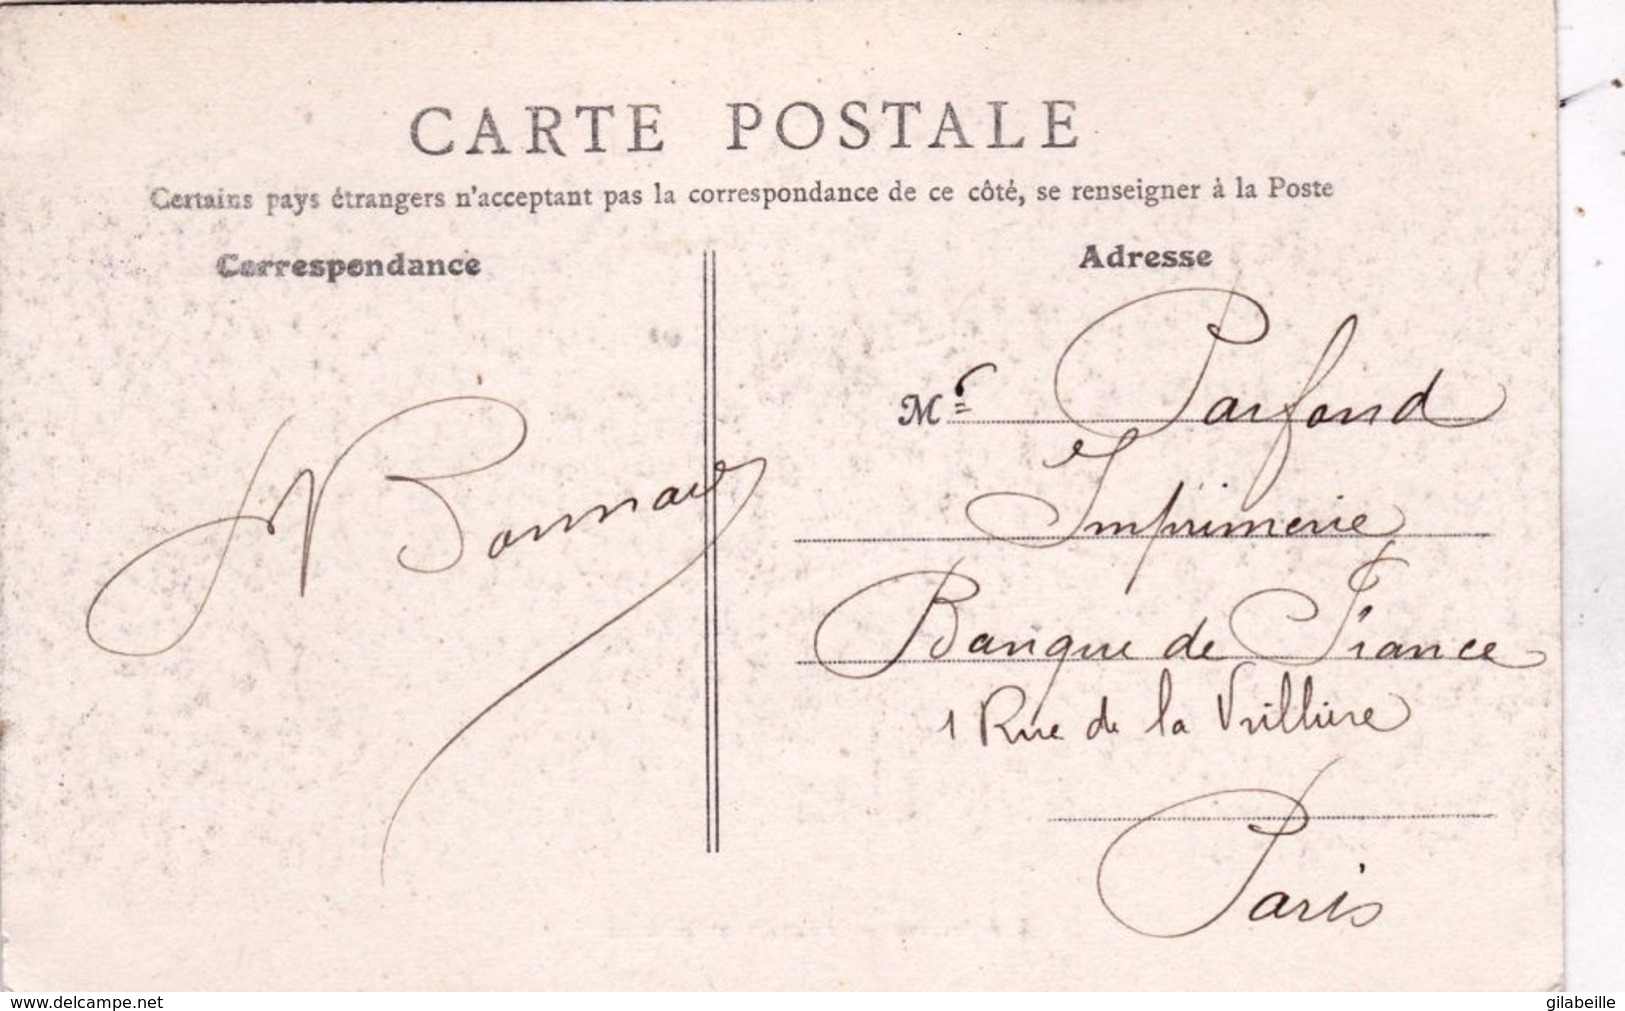 CARTE POSTALE
Certains pays étrangers n'acceptant pas la correspondance de ce côté, se renseigner à la Poste
Correspondance
Adresse
Mr Parfond
Imprimerie
Banque de France
1 Rue de la Vrillière
Paris
www.delcampe.net
gilabeille